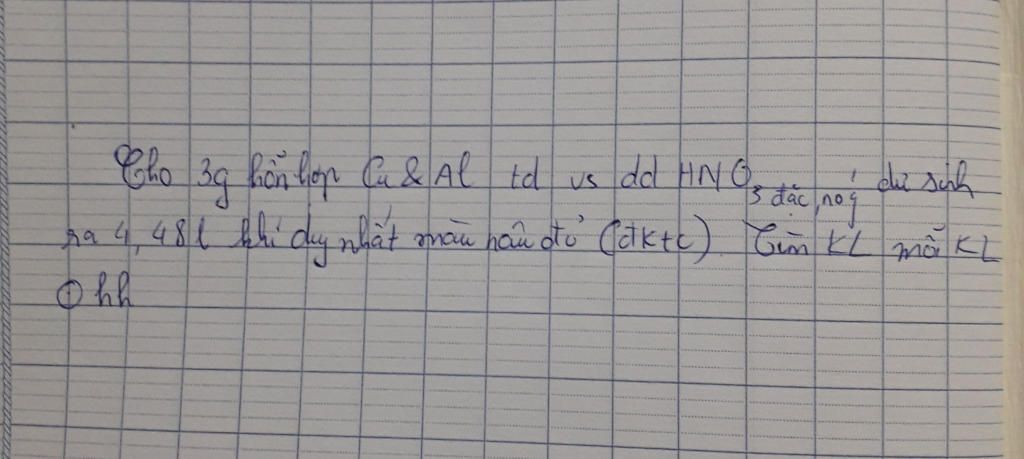 Cho 3g hỗn hợp Cu & Al td vs dd HNO₃ đặc, nóg dư sinh
ra 4,48l khí duy nhất màu nâu đỏ (đktc) Tìm KL mỗi KL
① hh